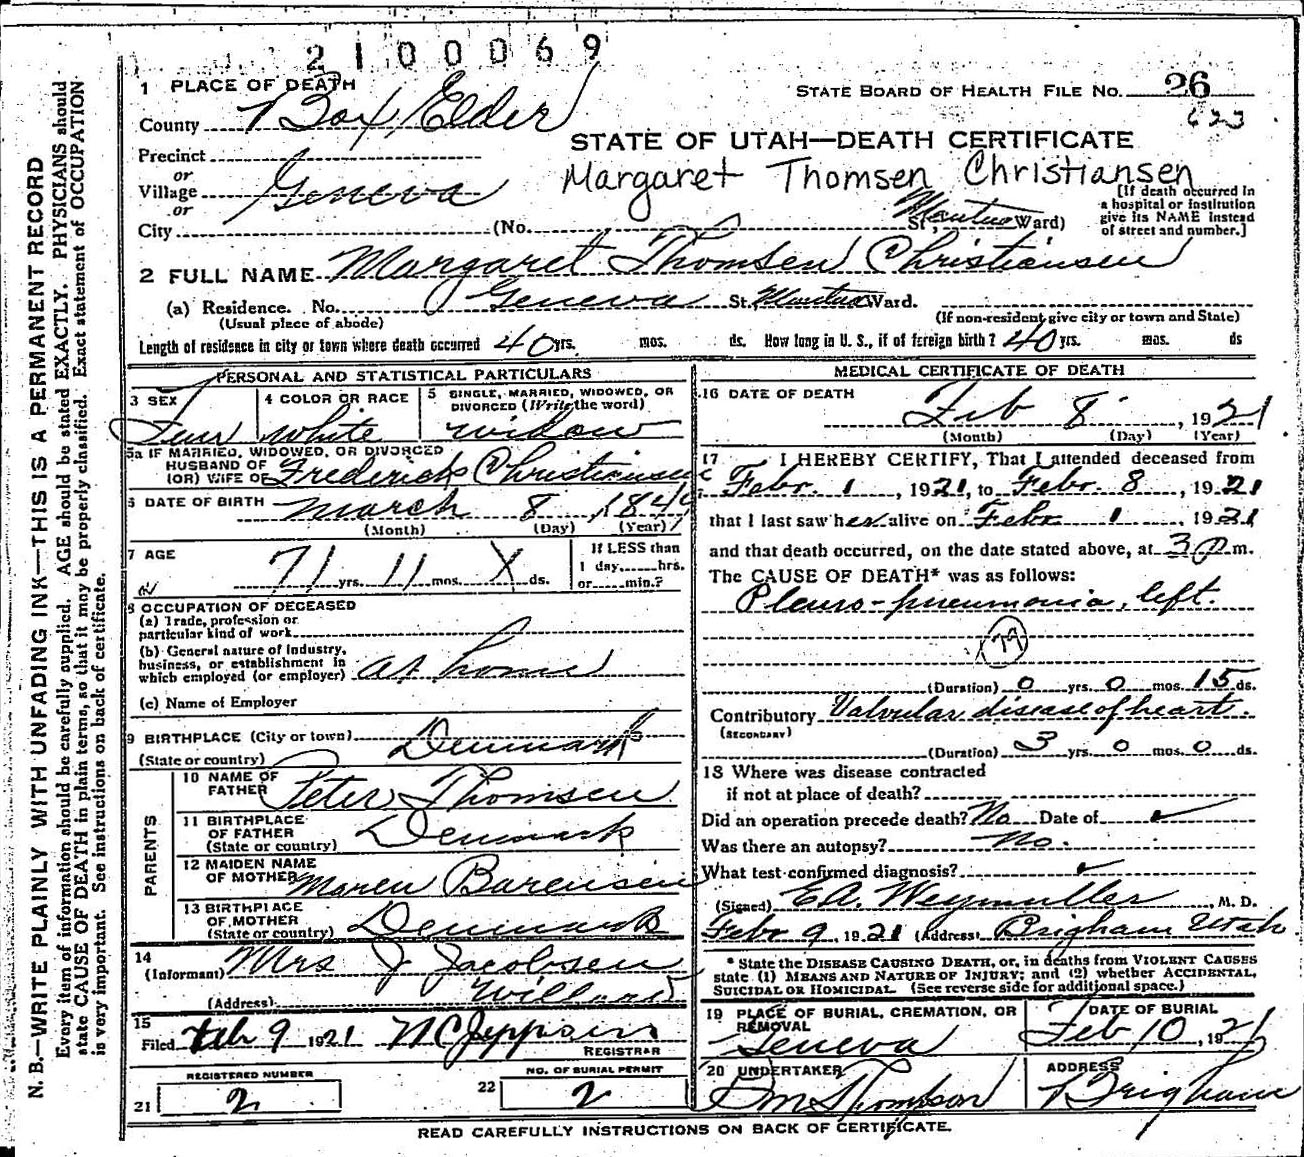 2100069
1 PLACE OF DEATH
STATE BOARD OF HEALTH FILE NO. 26
623
County Box Elder
STATE OF UTAH—DEATH CERTIFICATE
Precinct
or
Village Geneva
or
City (No. St, Mantua Ward)
Margaret Thomsen Christiansen
[If death occurred in
a hospital or institution
give its NAME instead
of street and number.]
2 FULL NAME Margaret Thomsen Christiansen
(a) Residence. No. Geneva St, Mantua Ward.
(Usual place of abode) (If non-resident give city or town and State)
Length of residence in city or town where death occurred 40 yrs. mos. ds. How long in U. S., if of foreign birth? 40 yrs. mos. ds
PERSONAL AND STATISTICAL PARTICULARS
3 SEX 4 COLOR OR RACE 5 SINGLE, MARRIED, WIDOWED, OR
DIVORCED (Write the word)
Fem white widow
5a IF MARRIED, WIDOWED, OR DIVORCED
HUSBAND OF
(OR) WIFE OF Frederick Christiansen
6 DATE OF BIRTH March 8 184
(Month) (Day) (Year)
7 AGE 71 yrs. 11 mos. X ds.
If LESS than
1 day, hrs.
or min.?
8 OCCUPATION OF DECEASED
(a) Trade, profession or
particular kind of work
(b) General nature of industry,
business, or establishment in
which employed (or employer) at home
(c) Name of Employer
9 BIRTHPLACE (City or town)
(State or country) Denmark
PARENTS
10 NAME OF
FATHER Peter Thomsen
11 BIRTHPLACE
OF FATHER
(State or country) Denmark
12 MAIDEN NAME
OF MOTHER Maren Barensen
13 BIRTHPLACE
OF MOTHER
(State or country) Denmark
14
(Informant) Mrs J Jacobsen
(Address) Willard
15
Filed Feb 9 1921 N C Jeppsen
REGISTRAR
REGISTERED NUMBER
21 2
NO. OF BURIAL PERMIT
22 2
MEDICAL CERTIFICATE OF DEATH
16 DATE OF DEATH
Feb 8, 1921
(Month) (Day) (Year)
17 I HEREBY CERTIFY, That I attended deceased from
Febr. 1, 1921, to Febr. 8, 1921
that I last saw her alive on Febr 1, 1921
and that death occurred, on the date stated above, at 3 p m.
The CAUSE OF DEATH* was as follows:
Pleuro-pneumonia, left.
79
(Duration) 0 yrs. 0 mos. 15 ds.
Contributory Valvular disease of heart.
(SECONDARY)
(Duration) 3 yrs. 0 mos. 0 ds.
18 Where was disease contracted
if not at place of death?
Did an operation precede death? No Date of
Was there an autopsy? No.
What test confirmed diagnosis?
(Signed) E.A. Weymuller, M. D.
Febr 9, 1921 (Address) Brigham Utah
* State the DISEASE CAUSING DEATH, or, in deaths from VIOLENT CAUSES
state (1) MEANS AND NATURE OF INJURY; and (2) whether ACCIDENTAL,
SUICIDAL OR HOMICIDAL. (See reverse side for additional space.)
19 PLACE OF BURIAL, CREMATION, OR
REMOVAL
Geneva
DATE OF BURIAL
Feb 10, 1921
20 UNDERTAKER
Thompson
ADDRESS
Brigham
READ CAREFULLY INSTRUCTIONS ON BACK OF CERTIFICATE.
N. B.—WRITE PLAINLY WITH UNFADING INK—THIS IS A PERMANENT RECORD
Every item of information should be carefully supplied. AGE should be stated EXACTLY. PHYSICIANS should
state CAUSE OF DEATH in plain terms, so that it may be properly classified. Exact statement of OCCUPATION
is very important. See instructions on back of certificate.